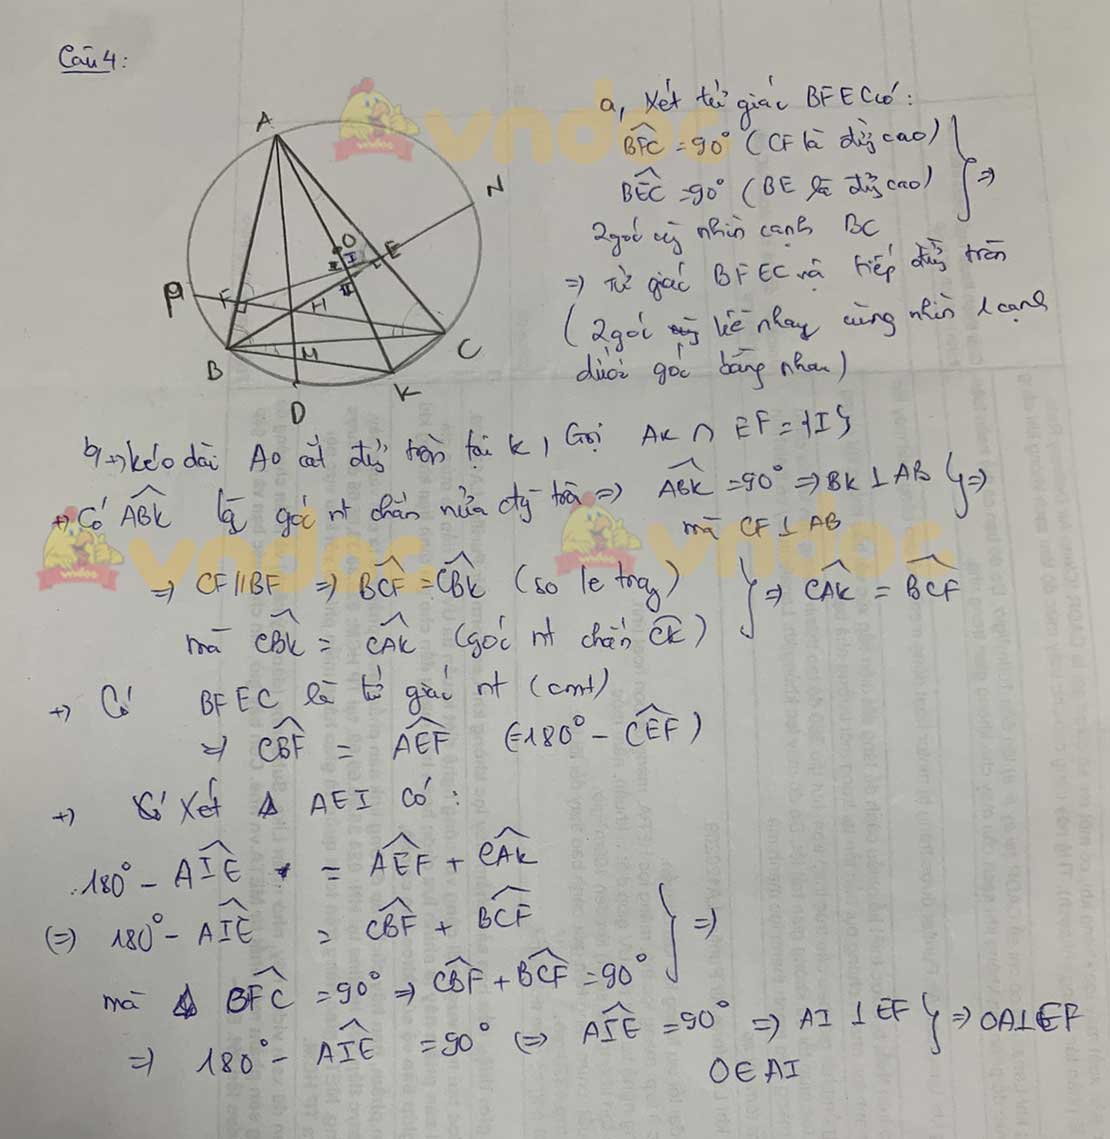 Câu 4:
A
N
O
I
E
P
F
H
B
M
C
K
D
a, Xét tứ giác BFEC có:
BFC = 90° (CF là đg cao)
BEC = 90° (BE là đg cao) } =>
2 góc cùng nhìn cạnh BC
=> Tứ giác BFEC nội tiếp đg tròn
(2 góc kề nhau cùng nhìn 1 cạnh
dưới góc bằng nhau)
b, +) kéo dài AO cắt đg tròn tại K, Gọi AK ∩ EF = {I}
+) Có ABK là góc nt chắn nửa đg tròn => ABK = 90° => BK ⊥ AB } =>
mà CF ⊥ AB
=> CF // BF => BCF = CBK (so le trg) } => CAK = BCF
mà CBK = CAK (góc nt chắn CK)
+) Có BFEC là tứ giác nt (cmt)
=> CBF = AEF (=180° - CEF)
+) Xét Δ AEI có:
180° - AIE = AEF + CAK
(=) 180° - AIE = CBF + BCF } =>
mà Δ BFC = 90° => CBF + BCF = 90°
=> 180° - AIE = 90° (=) AIE = 90° => AI ⊥ EF } => OA ⊥ EF
O ∈ AI
vndoc
vndoc
vndoc